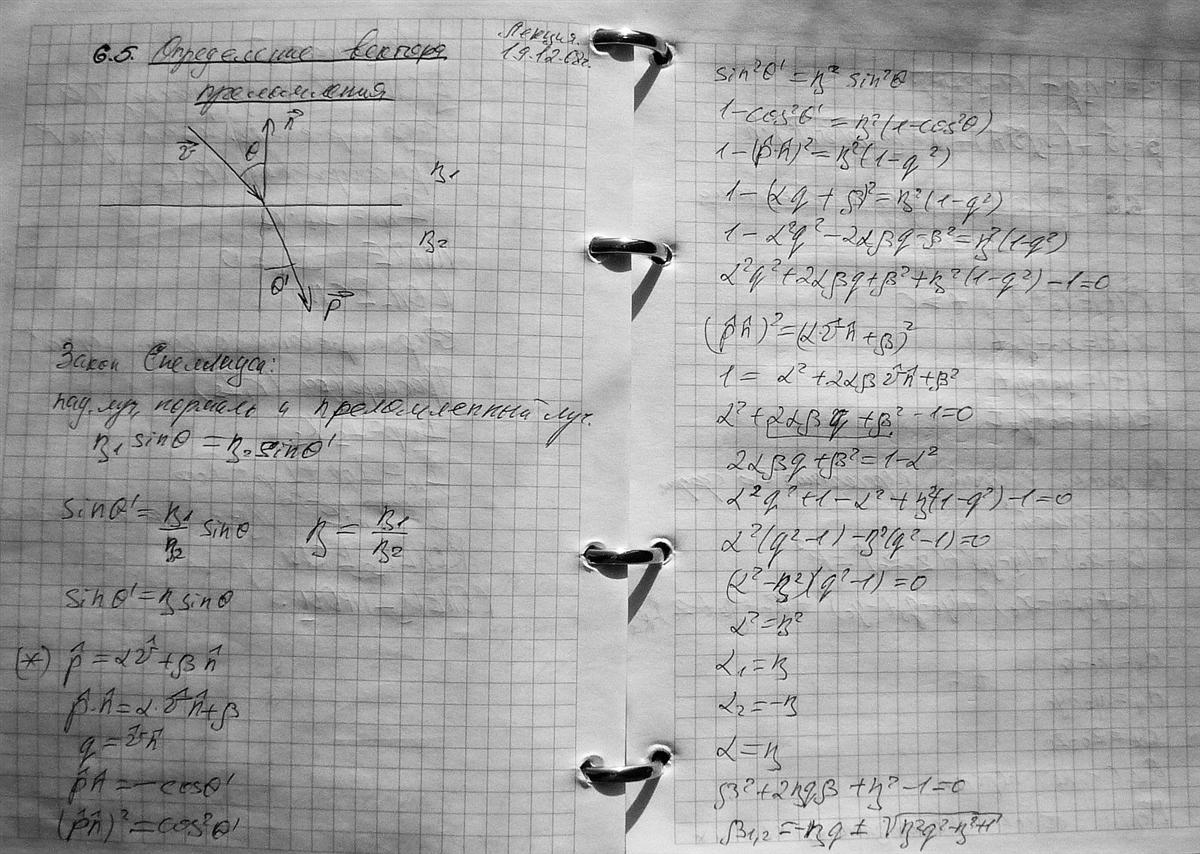 6.5. Определение вектора
Лекция.
19.12.08г.
преломления
n⃗
v⃗
θ
n₁
n₂
θ'
p⃗
Закон Снеллиуса:
пад. луч, нормаль и преломленный луч.
n₁ sinθ = n₂ sinθ'
sinθ' = n₁/n₂ sinθ    n = n₁/n₂
sinθ' = n sinθ
(*) p̂ = αv̂ + βn̂
p̂·n̂ = α·v̂n̂ + β
q = v̂n̂
p̂n̂ = -cosθ'
(p̂n̂)² = cos²θ'
sin²θ' = n² sin²θ
1-cos²θ' = n²(1-cos²θ)
1-(p̂·n̂)² = n²(1-q²)
1-(αq+β)² = n²(1-q²)
1-α²q²-2αβq-β² = n²(1-q²)
α²q²+2αβq+β²+n²(1-q²)-1=0
(p̂n̂)² = (α·v̂n̂+β)²
1 = α²+2αβv̂n̂+β²
α²+2αβq+β²-1=0
2αβq+β²=1-α²
α²q²+1-α²+n²(1-q²)-1=0
α²(q²-1)-n²(q²-1)=0
(α²-n²)(q²-1)=0
α²=n²
α₁=n
α₂=-n
α=n
β²+2nqβ+n²-1=0
β₁,₂=-nq ± √n²q²-n²+1